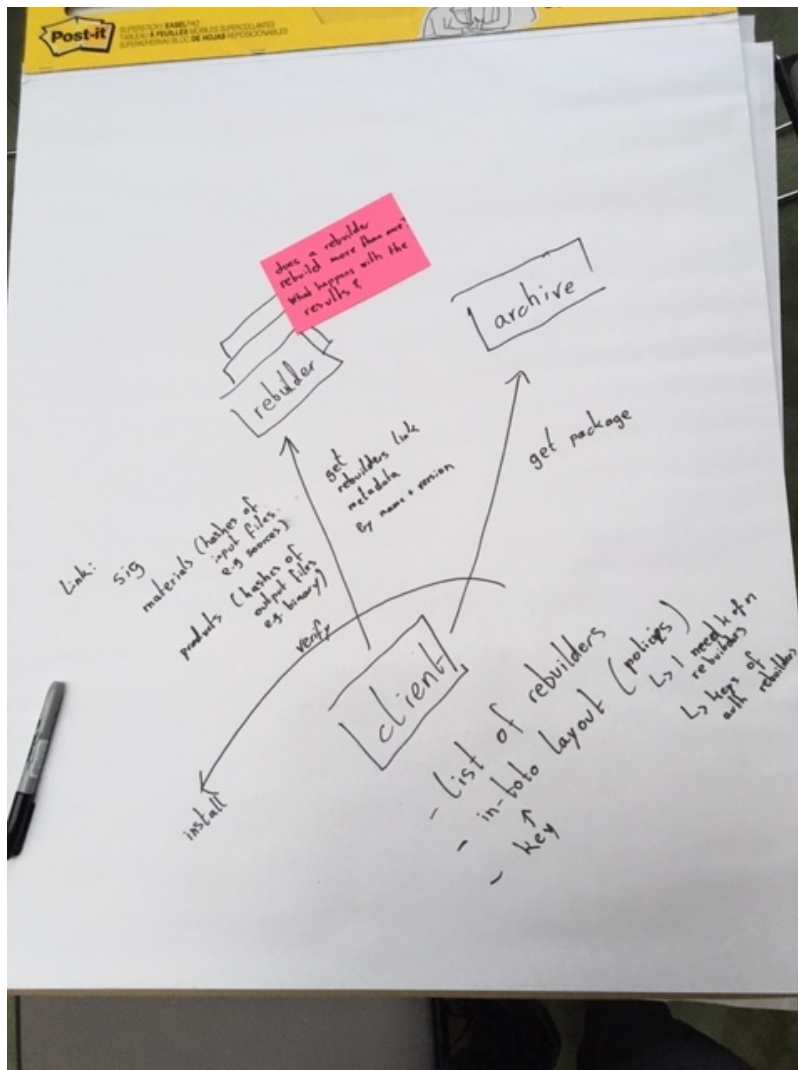 Post-it
SUPERSTICKY EASEL PAD
TABLEAU À FEUILLES MOBILES SUPERCOLLANTES
SUPERADHESIVAS BLOC DE HOJAS REPOSICIONABLES
does a rebuilder
rebuild more than one?
What happens with the
results?
rebuilder
archive
get
rebuilders link
metadata
by name + version
get package
Link:
sig
materials (hashes of
input files.
e.g sources)
products (hashes of
output files
e.g. binary)
verify
install
client
- list of rebuilders
- in-toto layout (policies)
↳ I need k of n
rebuilders
↳ keys of
auth rebuilders
- key